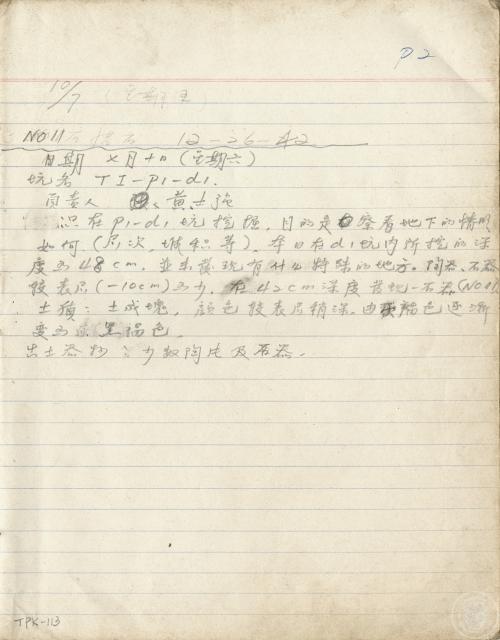 P2
10/7 (星期
NO11 石 12-26-42
日期 x月十日(星期六)
坑名 TI-P1-d1.
負責人 黃士強
在P1-d1坑挖掘,目的是察看地下的情形
如何(層次、堆積等),本日在d1坑內所挖的深
度為48cm,並未發現有什么特殊的地方。陶器、石器
較表層(-10cm)為少,在42cm深度發現一石器(NO11)
土質:土成塊,顏色較表層稍深。由褐色逐漸
變為黑褐色.
出土器物:少數陶片及石器.
TPK-113